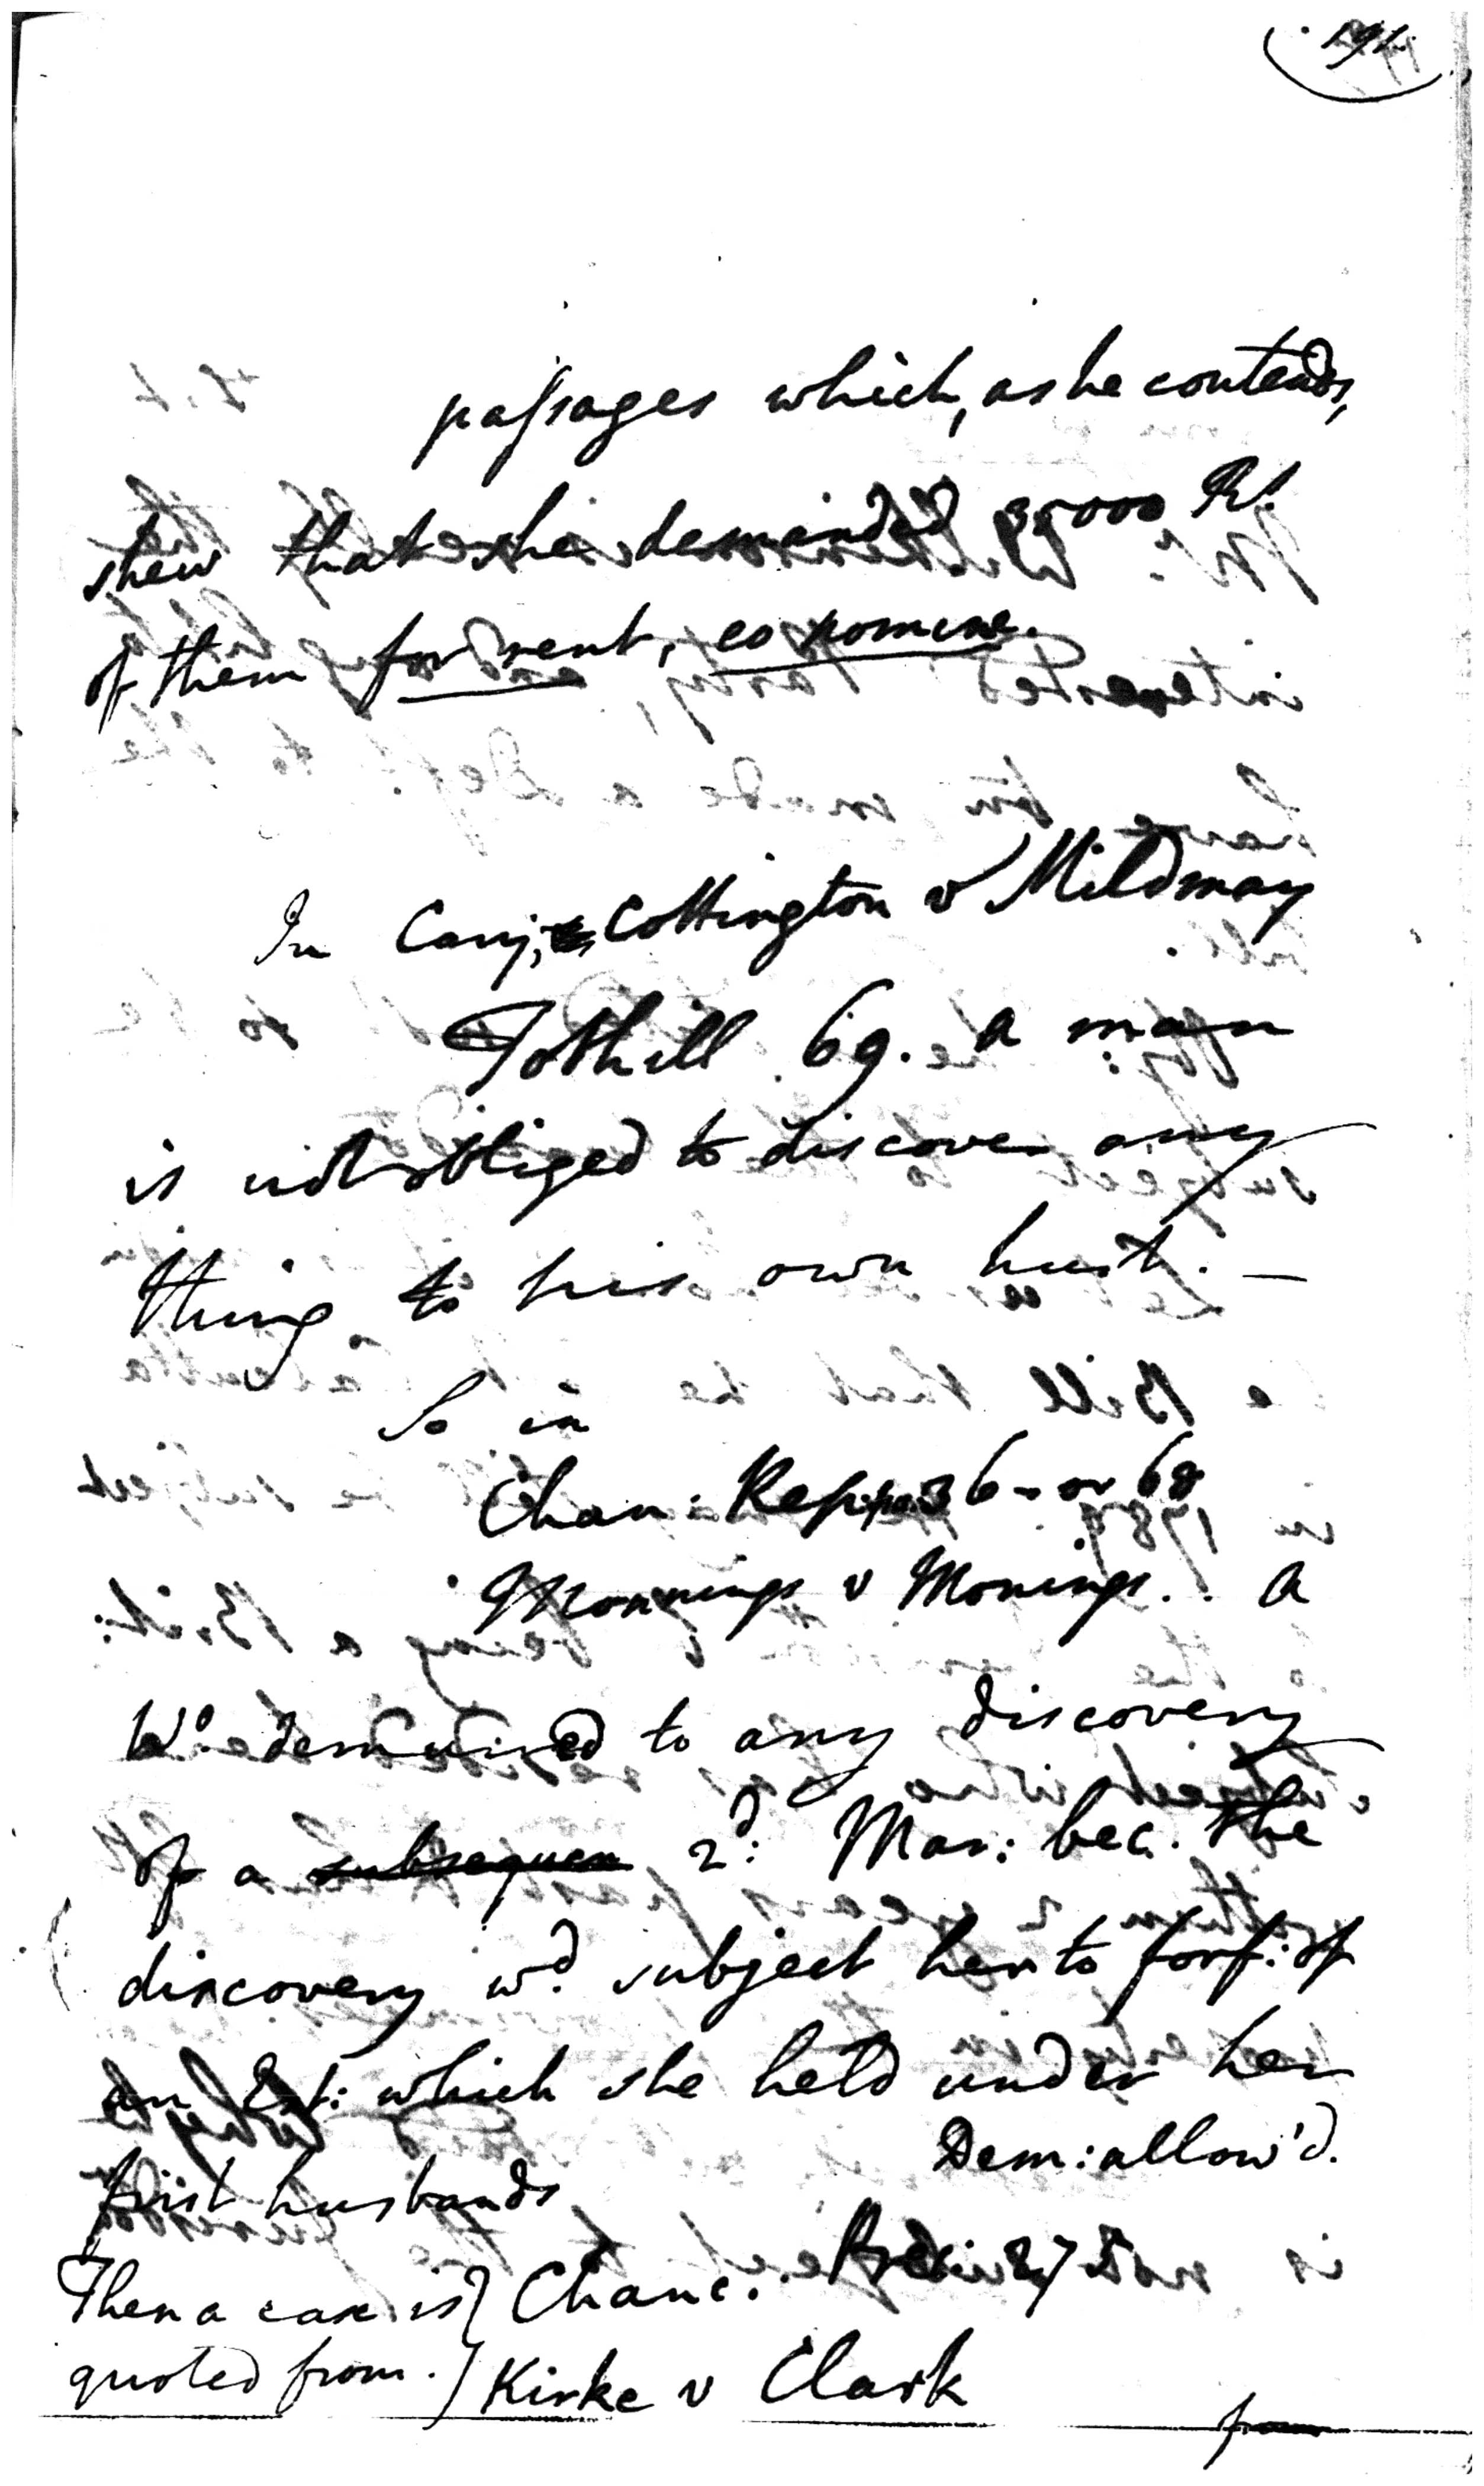 191.
passages which, as he contends,
shew that she demanded 35000 Rs.
of them for rent, eo nomine.
In Cary, Cottington v Mildmay
Tothill 69. a man
is not obliged to discover any
thing to his own hurt. —
So in
Chan: Rep: pa. 36 - or 68
Monnings v Monings.. A
Wo. demurred to any discovery
of a subsequen 2d: Mar: bec. the
discovery wd. subject her to forf: of
an Est: which she held under her
first husbands Dem: allow'd.
Then a case is} Chanc. Prec: 275
quoted from.} Kirke v Clark
from